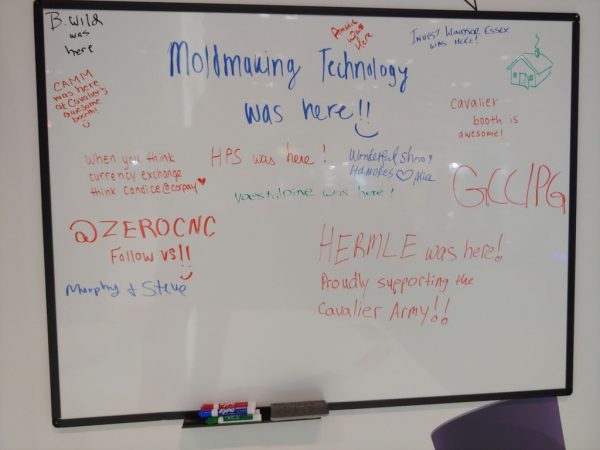 B. Wild
was
here
CAMM
was here
at Cavalier's
awesome
booth!
Moldmaking Technology
was here!!
was
here
INVEST WINDSOR ESSEX
WAS HERE!
Cavalier
booth is
awesome!
When you think
currency exchange
think Candice@corpay
HPS was here!
Wonderful show!
voestalpine was here!
GCCIPG
@ZEROCNC
Follow vs!!
Murphy & Steve
HERMLE was here!
Proudly supporting the
Cavalier Army!!
EXPO